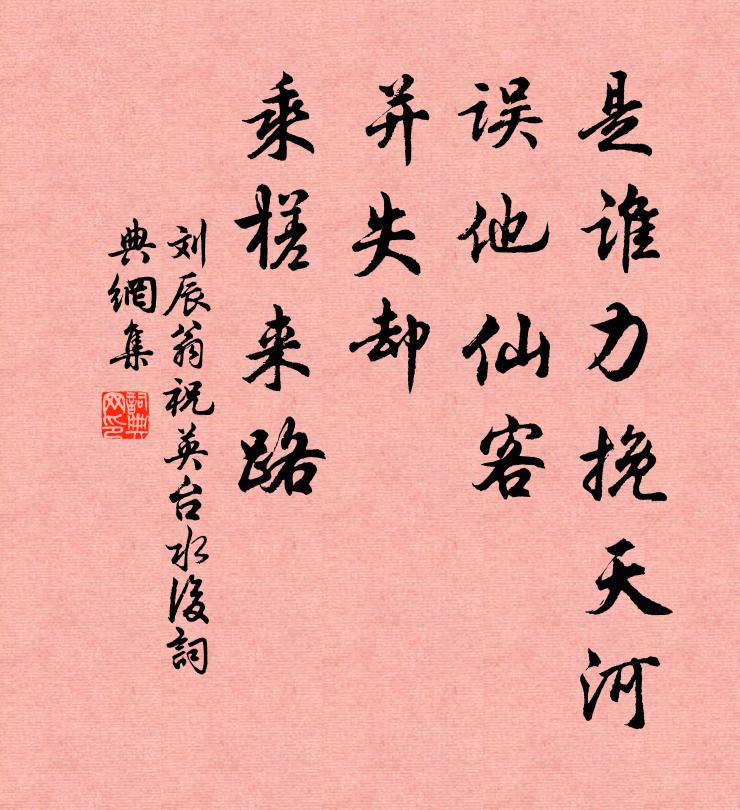 是谁力挽天河
误他仙客
并失却
乘槎来路
刘辰翁祝英台水後詞
典網集
詞典网印